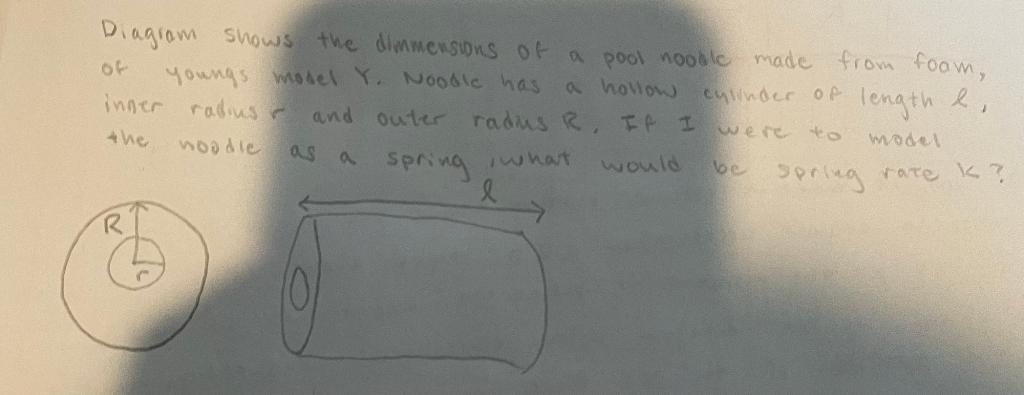 Diagram shows the dimmensions of a pool nooble made from foam,
of youngs model Y. Noodle has a hollow cylinder of length l,
inner radius r and outer radius R. If I were to model
the noodle as a spring, what would be spring rate k?
l
R
r